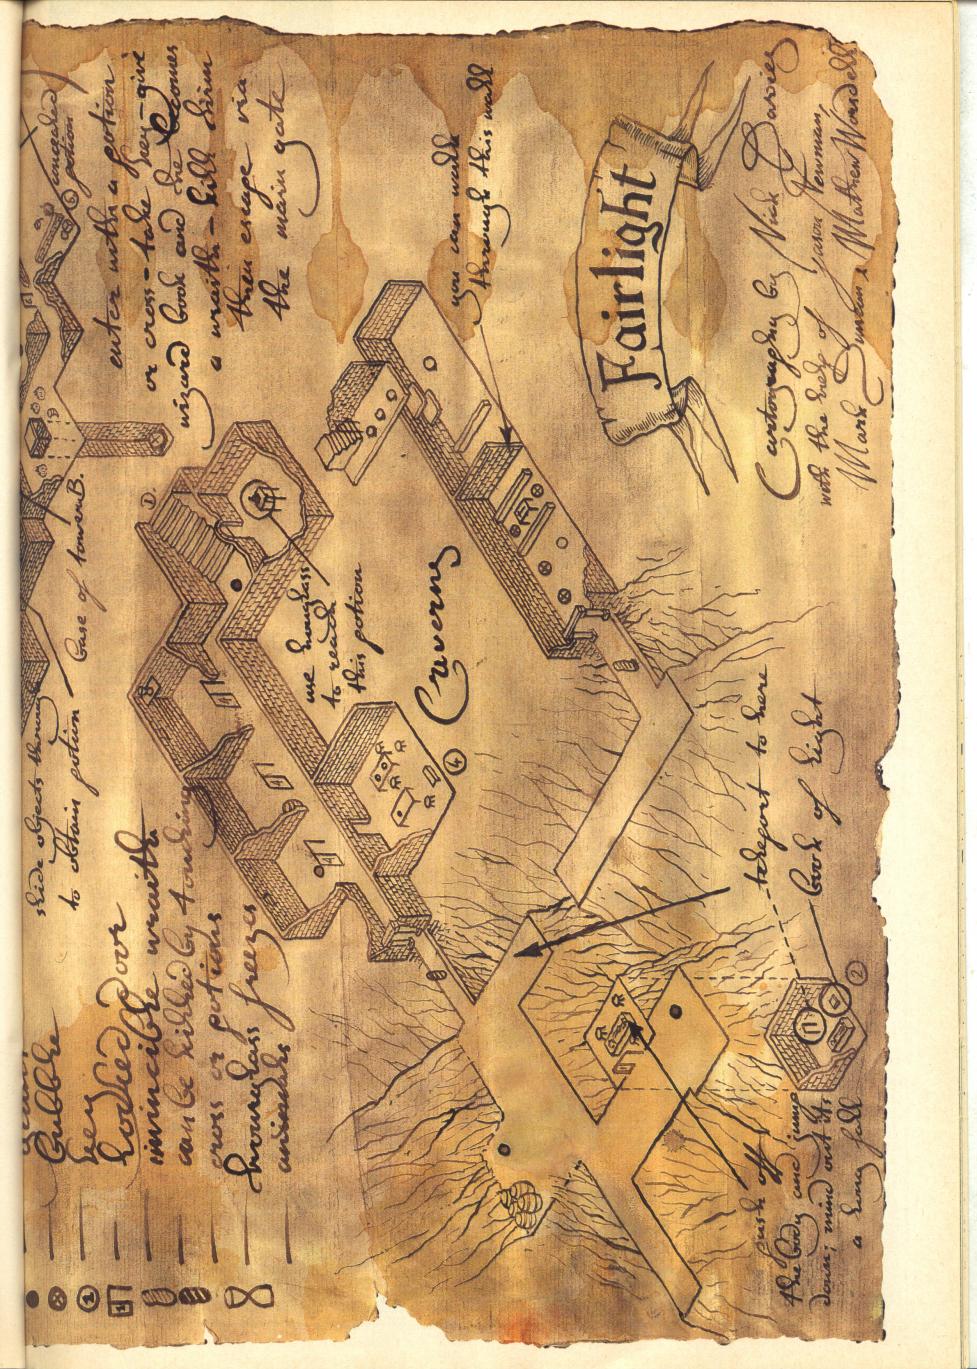 concealed
potion
enter with a potion
or cross - take key - give
wizard book and he becomes
a wraith - kill him
then escape via
the main gate
you can walk
through this wall
Fairlight
Cartography by Nick Davies
with the help of Jason Newman,
Mark Duncan &
slide objects
to obtain potion
base of tower B.
1
3
use hourglass
to reach
this potion
Caverns
4
Bubble
key
locked door
invincible wraith
can be killed by touching
cross or potions
hourglass freezes
animals
teleport to here
book of light
2
push off
the body and jump
down; mind out its
a long fall